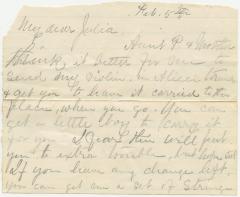 Feb. 5th
My dear Julia.
Aunt P & Mother
think it better for me to
send my violin in Alice's trunk
& get you to have it carried to the
place, when you go. You can
get a little boy to carry it
for you. I fear this will put
you to extra trouble, but
If you have any change left,
you can get me a set of strings